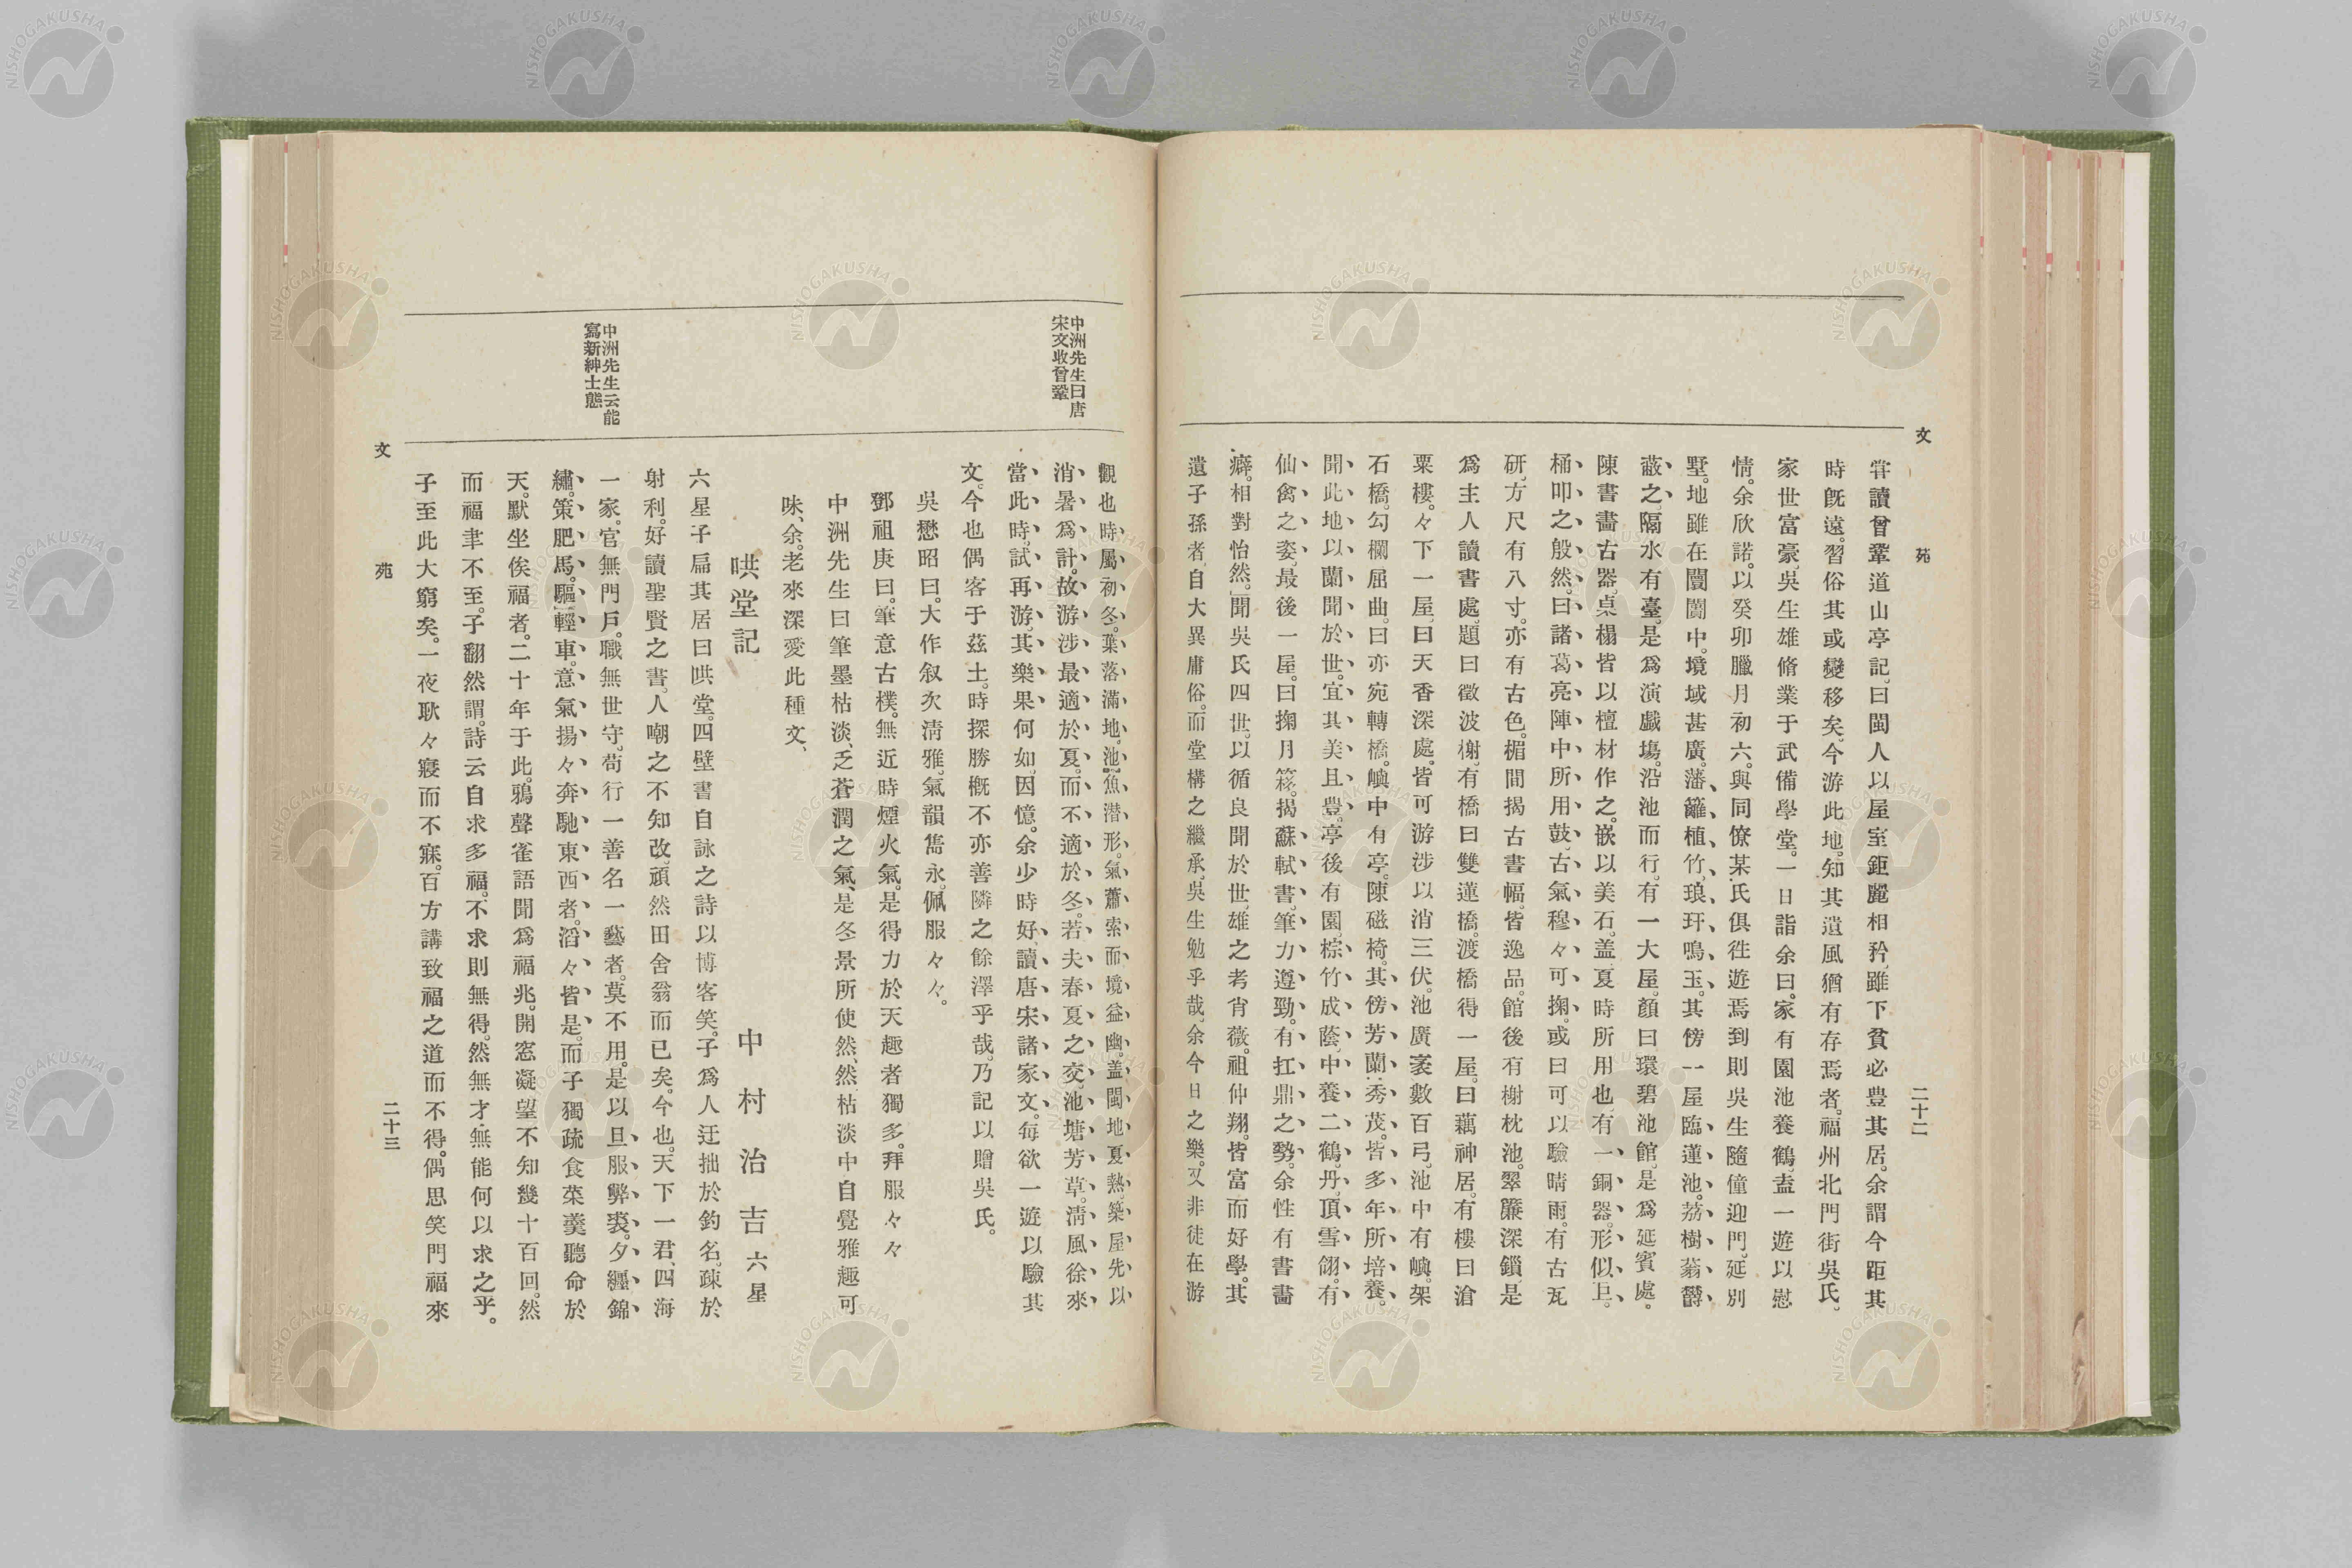 文苑
二十二
甞讀曾鞏道山亭記。曰閩人以屋室鉅麗相矜。雖下貧必豊其居。余謂今距其
時旣遠。習俗其或變移矣。今游此地。知其遺風猶有存焉者。福州北門街吳氏。
家世富豪。吳生雄脩業于武備學堂。一日詣余曰。家有園池養鶴。盍一遊以慰
情。余欣諾。以癸卯臘月初六。與同僚某氏俱徃遊焉。到則吳生隨僮迎門。延別
墅。地雖在闤闠中。境域甚廣。藩籬植竹。琅玕鳴玉。其傍一屋臨蓮池。荔樹蓊欝
蔽之。隔水有臺。是爲演戲塲。沿池而行。有一大屋。顏曰環碧池館。是爲延賓處。
陳書畵古器。桌榻皆以檀材作之。嵌以美石。盖夏時所用也。有一銅器。形似巨
桶。叩之殷然。曰諸葛亮陣中所用鼓。古氣穆々可掬。或曰可以驗晴雨。有古瓦
硏。方尺有八寸。亦有古色。楣間揭古書幅。皆逸品。館後有榭枕池。翠簾深鎖。是
爲主人讀書處。題曰徵波榭。有橋曰雙蓮橋。渡橋得一屋。曰藕神居。有樓曰滄
粟樓。々下一屋。曰天香深處。皆可游涉以消三伏。池廣袤數百弓。池中有嶼。架
石橋。勾欄屈曲。曰亦宛轉橋。嶼中有亭。陳磁椅。其傍芳蘭秀茂。皆多年所培養。
聞此地以蘭聞於世。宜其美且豊。亭後有園。棕竹成蔭。中養二鶴。丹頂雪翎。有
仙禽之姿。最後一屋。曰掬月簃。揭蘇軾書。筆力遵勁。有扛鼎之勢。余性有書畵
癖。相對怡然。聞吳氏四世。以循良聞於世。雄之考宵薇。祖仲翔。皆富而好學。其
遺子孫者。自大異庸俗。而堂構之繼承。吳生勉乎哉。余今日之樂。又非徒在游
中洲先生曰唐
宋文收曾鞏
觀也。時屬初冬。葉落滿地。池魚潜形。氣蕭索而境益幽。盖閩地夏熱。築屋先以
消暑爲計。故游涉最適於夏。而不適於冬。若夫春夏之交。池塘芳草。淸風徐來
當此時。試再游。其樂果何如。因憶。余少時好讀唐宋諸家文。每欲一遊以驗其
文。今也偶客于茲土。時探勝槪不亦善隣之餘澤乎哉。乃記以贈吳氏。
吳懋昭曰。大作叙次淸雅。氣韻雋永。佩服々々。
鄧祖庚曰。筆意古樸。無近時煙火氣。是得力於天趣者獨多。拜服々々
中洲先生曰筆墨枯淡、乏蒼潤之氣、是冬景所使然、然枯淡中自覺雅趣可
味、余。老來深愛此種文、
哄堂記
中村治吉 六星
中洲先生云能
寫新紳士態
六星子扁其居曰哄堂。四壁書自詠之詩以博客笑。子爲人迂拙於釣名。疎於
射利。好讀聖賢之書。人嘲之不知改。頑然田舍翁而已矣。今也。天下一君、四海
一家。官無門戶。職無世守。苟行一善名一藝者。莫不用。是以旦服弊裘。夕纒錦
繡。策肥馬。驅輕車。意氣揚々奔馳東西者。滔々皆是。而子獨疏食菜羹聽命於
天。默坐俟福者。二十年于此。鴉聲雀語聞爲福兆。開窓凝望不知幾十百回。然
而福聿不至。子翻然謂。詩云自求多福。不求則無得。然無才無能何以求之乎。
子至此大窮矣。一夜耿々寢而不寐。百方講致福之道而不得。偶思笑門福來
文苑
二十三